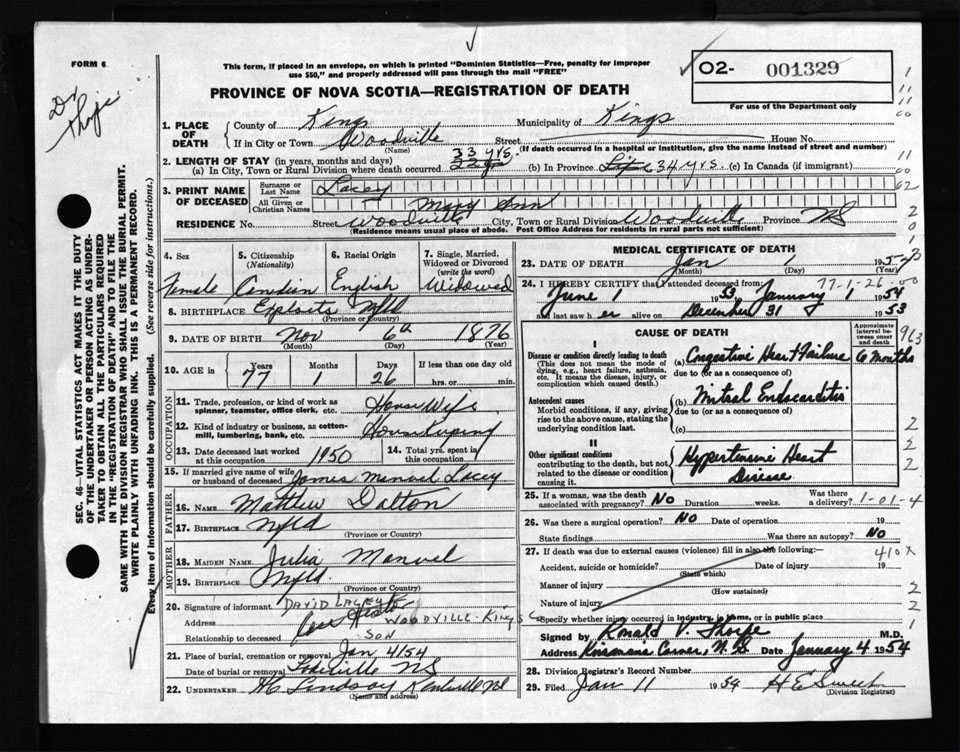 FORM 6
Dr Thorpe
This form, if placed in an envelope, on which is printed "Dominion Statistics—Free, penalty for improper
use $50," and properly addressed will pass through the mail "FREE"
PROVINCE OF NOVA SCOTIA—REGISTRATION OF DEATH
02- 001329
For use of the Department only
SEC. 46—VITAL STATISTICS ACT MAKES IT THE DUTY
OF THE UNDERTAKER OR PERSON ACTING AS UNDER-
TAKER TO OBTAIN ALL THE PARTICULARS REQUIRED
IN THE "REGISTRATION OF DEATH" AND TO FILE THE
SAME WITH THE DIVISION REGISTRAR WHO SHALL ISSUE THE BURIAL PERMIT.
WRITE PLAINLY WITH UNFADING INK. THIS IS A PERMANENT RECORD.
Every item of information should be carefully supplied. (See reverse side for instructions.)
1. PLACE OF DEATH County of Kings Municipality of Kings
If in City or Town Woodville Street House No.
(Name) (If death occurred in a hospital or institution, give the name instead of street and number)
2. LENGTH OF STAY (in years, months and days)
(a) In City, Town or Rural Division where death occurred 33 yrs. (b) In Province Life 34 yrs. (c) In Canada (if immigrant)
3. PRINT NAME OF DECEASED Surname or Last Name Lacey
All Given or Christian Names Mary Ann
RESIDENCE No. Street Woodville City, Town or Rural Division Woodville Province NS
(Residence means usual place of abode. Post Office Address for residents in rural parts not sufficient)
4. Sex Female
5. Citizenship (Nationality) Canadian
6. Racial Origin English
7. Single, Married, Widowed or Divorced (write the word) Widowed
8. BIRTHPLACE Exploits Nfld
(Province or Country)
9. DATE OF BIRTH Nov 6th 1876
(Month) (Day) (Year)
10. AGE in Years 77 Months 1 Days 26 If less than one day old
hrs. or min.
OCCUPATION
11. Trade, profession, or kind of work as spinner, teamster, office clerk, etc. House Wife
12. Kind of industry or business, as cotton-mill, lumbering, bank, etc. Housekeeping
13. Date deceased last worked at this occupation 1950 14. Total yrs. spent in this occupation
15. If married give name of wife or husband of deceased James Manuel Lacey
FATHER
16. Name Matthew Dalton
17. Birthplace Nfld
(Province or Country)
MOTHER
18. MAIDEN NAME Julia Manuel
19. BIRTHPLACE Nfld
(Province or Country)
20. Signature of informant DAVID LACEY
Address WOODVILLE KINGS Co
Relationship to deceased SON
21. Place of burial, cremation or removal Jan 4/54
Date of burial or removal NS
22. UNDERTAKER Lindsay Kentville NS
(Name and address)
MEDICAL CERTIFICATE OF DEATH
23. DATE OF DEATH Jan 1 1954
(Month) (Day) (Year)
77-1-26
24. I HEREBY CERTIFY that I attended deceased from:
June 1 1953 January 1 1954
I last saw her alive on December 31 1953
CAUSE OF DEATH
Approximate interval between onset and death
I
Disease or condition directly leading to death
(This does not mean the mode of dying, e.g., heart failure, asthenia, etc. It means the disease, injury, or complication which caused death.)
(a) Congestive Heart Failure 6 months
due to (or as a consequence of)
Antecedent causes
Morbid conditions, if any, giving rise to the above cause, stating the underlying condition last.
(b) Mitral Endocarditis
due to (or as a consequence of)
(c)
II
Other significant conditions
contributing to the death, but not related to the disease or condition causing it.
Hypertensive Heart Disease
25. If a woman, was the death associated with pregnancy? No Duration weeks. Was there a delivery? 1-01-4
26. Was there a surgical operation? No Date of operation 19
State findings Was there an autopsy? No
27. If death was due to external causes (violence) fill in also the following:— 410X
Accident, suicide or homicide? Date of injury 19
(State which)
Manner of injury
(How sustained)
Nature of injury
Specify whether injury occurred in industry, in home, or in public place
Signed by Ronald V. Thorpe M.D.
Address Kinsmans Corner, N.S. Date January 4 1954
28. Division Registrar's Record Number
29. Filed Jan 11 1954 H E Sweet
(Division Registrar)